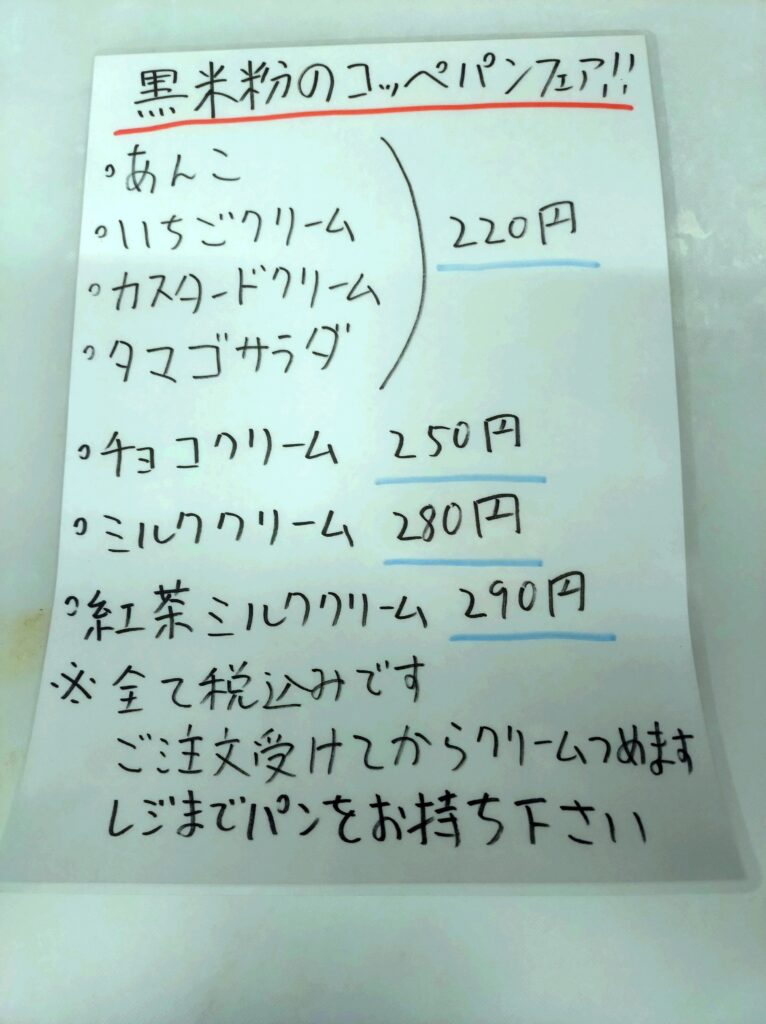 黒米粉のコッペパンフェア!!
・あんこ
・いちごクリーム 220円
・カスタードクリーム
・タマゴサラダ
・チョコクリーム 250円
・ミルククリーム 280円
・紅茶ミルククリーム 290円
※全て税込みです
ご注文受けてからクリームつめます
レジまでパンをお持ち下さい